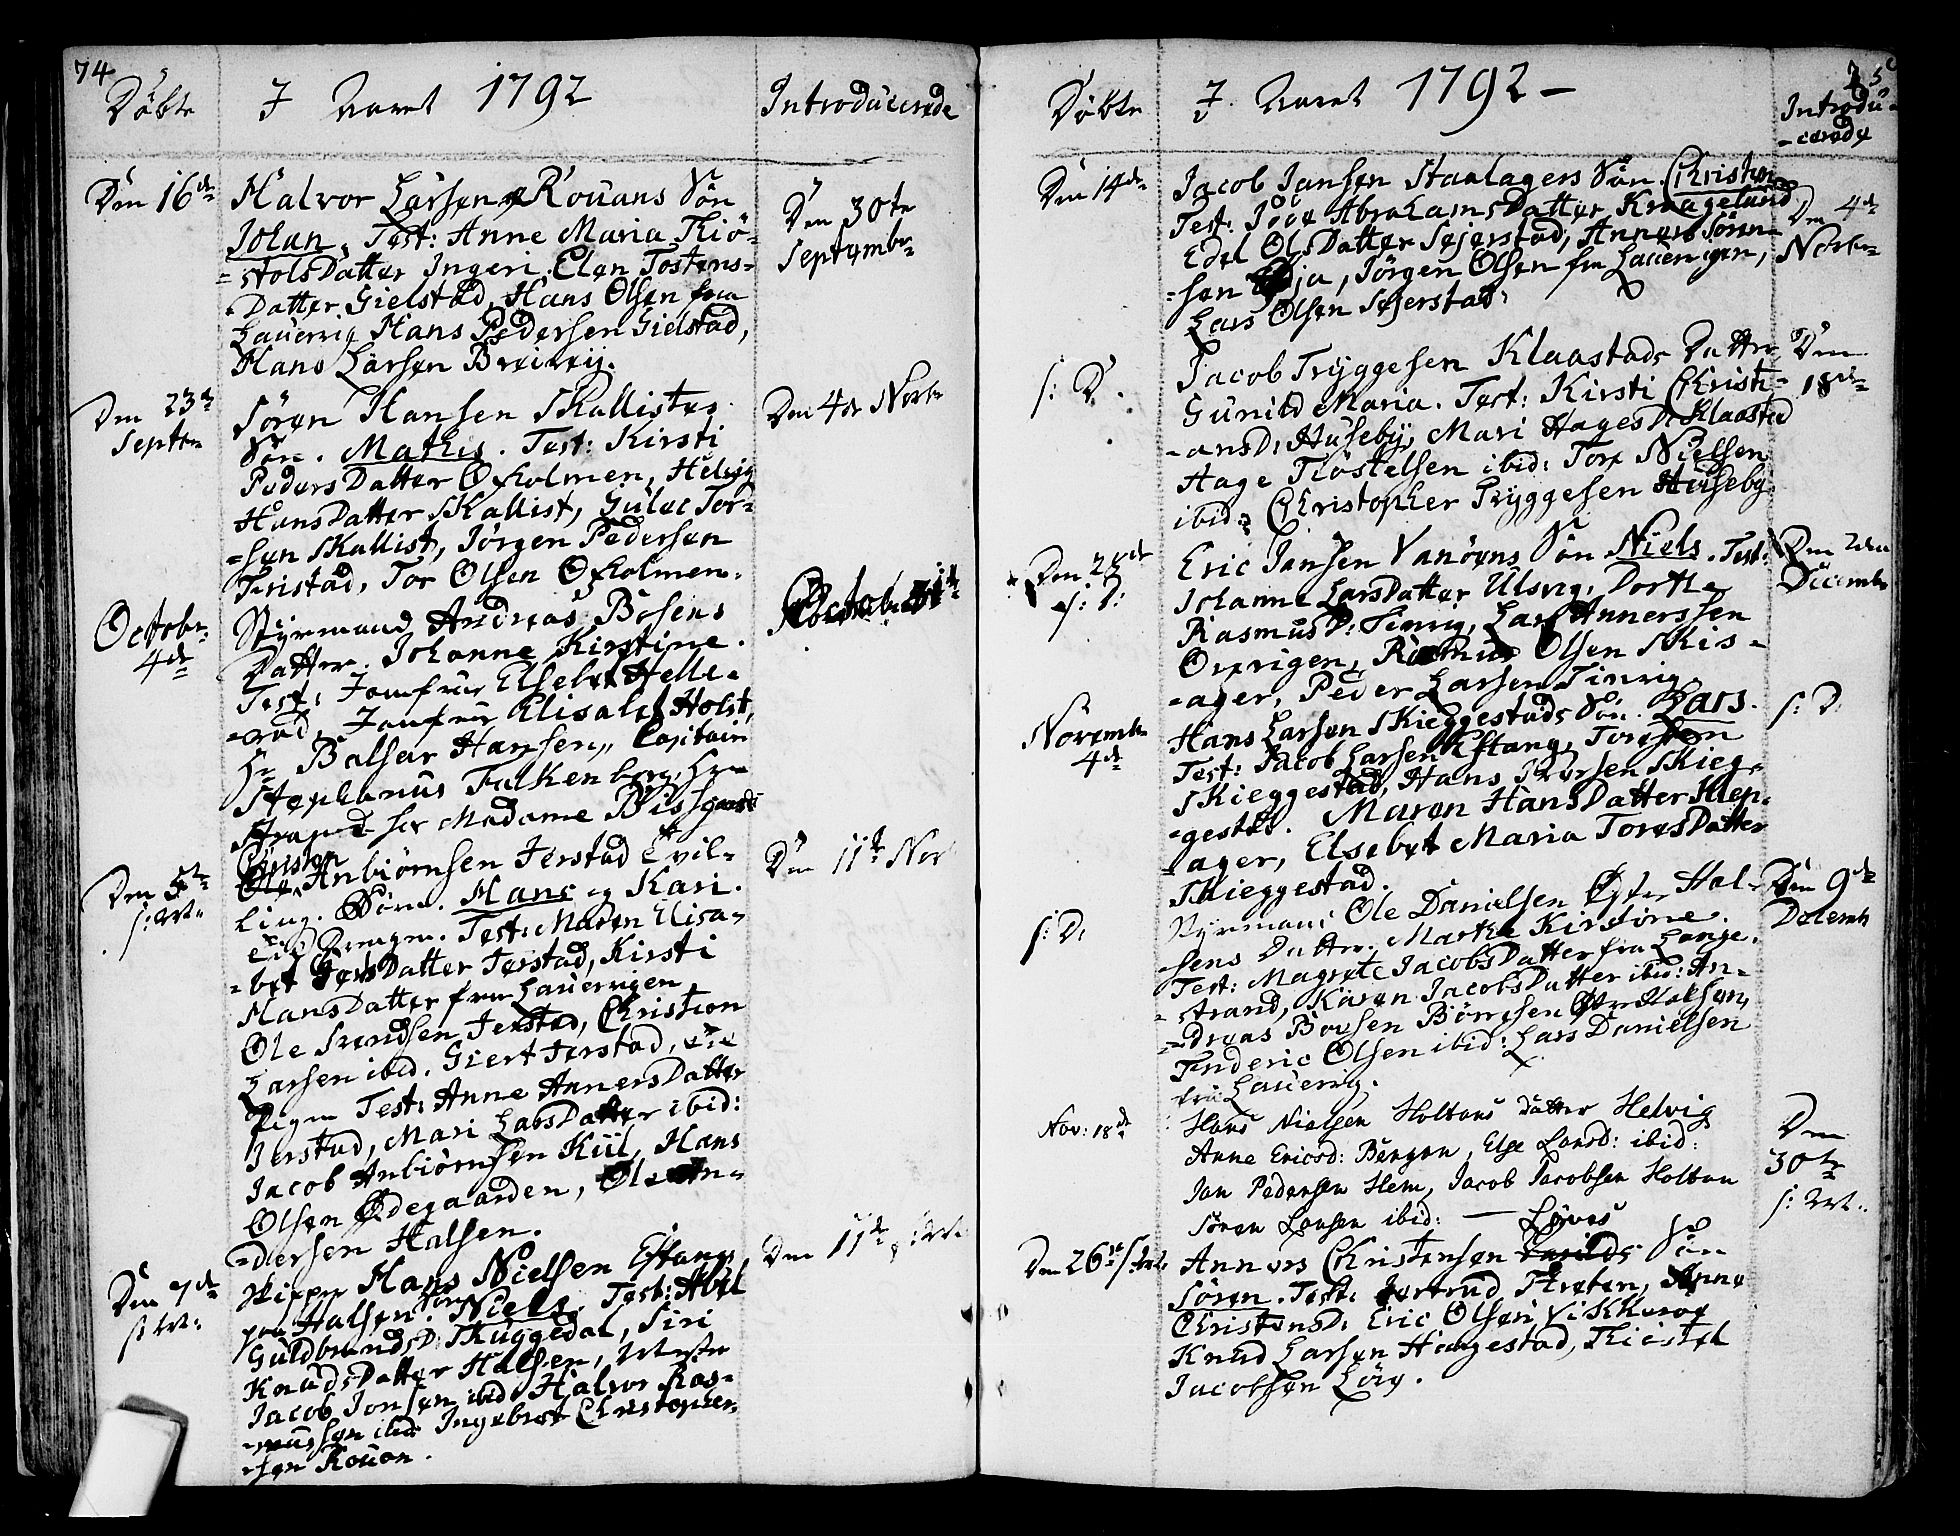 74
Döbte
I Aaret 1792
Introducerede
Den 16de
Halvor Larsens Rouans Sön
Johan. Test: Anne Maria Kiö-
=stolsDatter Ingeri. Elen Tostens-
=Datter Gielstad, Hans Olsen fra
Lauervig Hans Pedersen Gielstad,
Hans Larsen Breivig.
Den 30te
Septembr
Den 23de
Septem
Sören Hansen Skallistes
Sön. Mathis. Test: Kirsti
PedersDatter Oxholmen, Helvig
HansDatter Skallist, Guluc Tor-
=sen Skallist, Jörgen Pedersen
Teristad, Tor Olsen Oxholmen.
Den 4de Novbr
October
4de
Styrmand Andreas Bosens
Datter. Johanne Kirstine.
Test: Jomfrue Elsebet Helle-
=rud, Jomfrue Elisabet Holst,
Hr Balsar Hansen, Capitain
Stephanus Falkenborg,
for Madame Bissgaard
Den 5te
s: M:
Christen
Anbiörnsen Jerstad Tvil-
=ling. Börn. Hans og Kari.
Drengen. Test: Maren Elisa-
=bet Datter Jerstad, Kirsti
HansDatter fra Lauervigen,
Ole Svendsen Jerstad, Christion
Larsen ibid. Giert Jerstad,
Pigen Test: Anne AnnersDatter
Jerstad, Mari LarsDatter ibid:
Jacob Anbiörnsen Kiil, Hans
Olsen Ödegaarden, Ole An-
=dersen Halsen.
Den 11te Nov
Den 7de
s: M:
Skipper Hans Nielsen Eftang
paa Halsen. Sön Niels. Test: Abel
GuldbrandsD: Skuggedal, Siri
KnudsDatter Halsen,
Jacob Jonsen ibid: Halvor Ras-
=mussen ibid: Ingebret Christopher-
=sen Rouon.
Den 11te s: M:
Döbte
I Aaret 1792 -
75
Introdu-
-cerede
Den 14de
Jacob Jansen Staalagers Sön. Christen
Test: AbrahamsDatter Kragelund
Edel OlsDatter Sejerstad, Anners Sören-
=sen ja, Jörgen Olsen fra Lauervigen,
Lars Olsen Sejerstad:
Den 4de
Novbr
s: D:
Jacob Tryggesen Klaastads Datter
Gunild Maria. Test: Kirsti Christi-
-ansD: Huseby, Mari HagesD Klaastad
Hage Tiöstelsen ibid: Tore Nielsen
ibid: Christopher Tryggesen Huseby.
Den
18de
Den 28de
s: D:
Eric Jansen Vanöens Sön Niels. Test:
Johanne LarsDatter Ulsvig, Dorthe
RasmusD: Tinvig, Lars Annerssen
Overigen, Rasmus Olsen Skis-
=ager, Peder Larsen Tinvig
Den 2den
December
Novembr
4de
Hans Larsen Skieggestads Sön. Lars.
Test: Jacob Larsen Eftang,
Skieggestad, Hans Iversen Skieg-
=gestad. Maren HansDatter Skep-
ager, Elsebet Maria ToresDatter
Skieggestad.
s: D:
s: D:
Styrmand Ole Danielsen Öster Hal-
=sens Datter. Marthe Kirstine.
Test: Magrete JacobsDatter fra Lange-
=strand, Karen JacobsDatter ibid: An-
=dreas Boesen Börresen Halsen,
Frederic Olsen ibid: Lars Danielsen
fra Lauervig.
Den 9de
Decemb
Nov: 18de
Hans Nielsen Holtans Datter Helvig
Anne Ericsd: Bergen, Else Larsd: ibid:
Jan Pedersen Hem, Jacob Jacobsen Holtan
Sören Larsen ibid:
Den
30te
s: M:
Den 26de
Anners Christensen Löves Sön
Sören. Test: Jertrud
ChristensD: Eric Olsen
Knud Larsen Haugestad, Tiöstel
Jacobsen Löve.